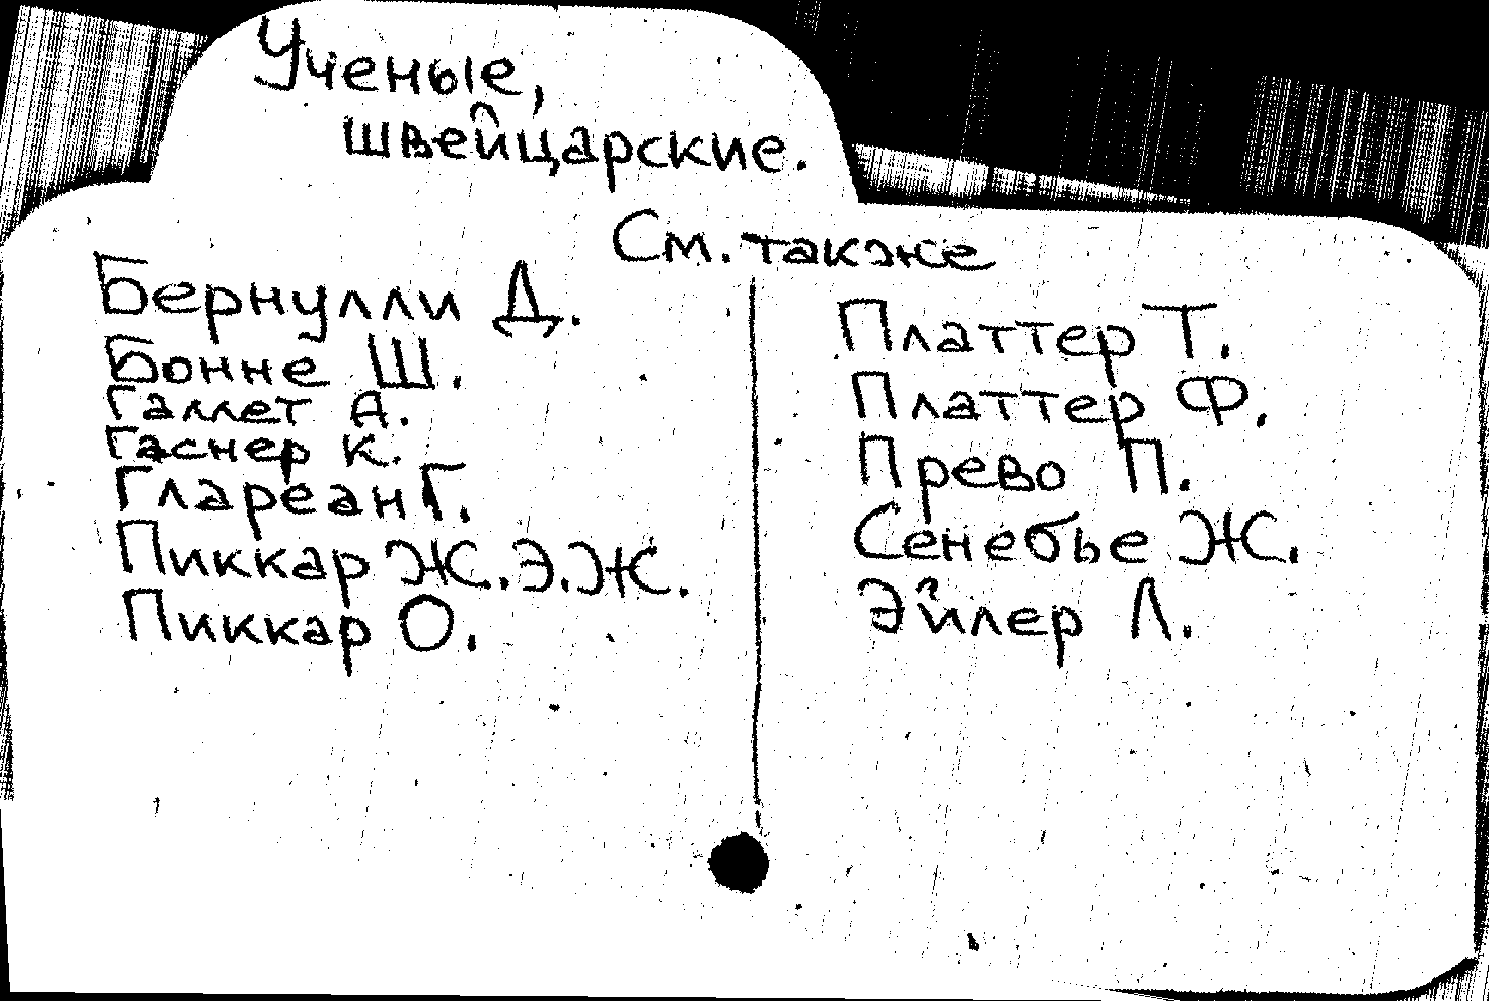 Ученые,
швейцарские.
См. также
Бернулли Д.
Бонне Ш.
Галлет А.
Гаснер К.
Глареан Г.
Пиккар Ж. Э. Ж.
Пиккар О.
Платтер Т.
Платтер Ф.
Прево П.
Сенебье Ж.
Эйлер Л.